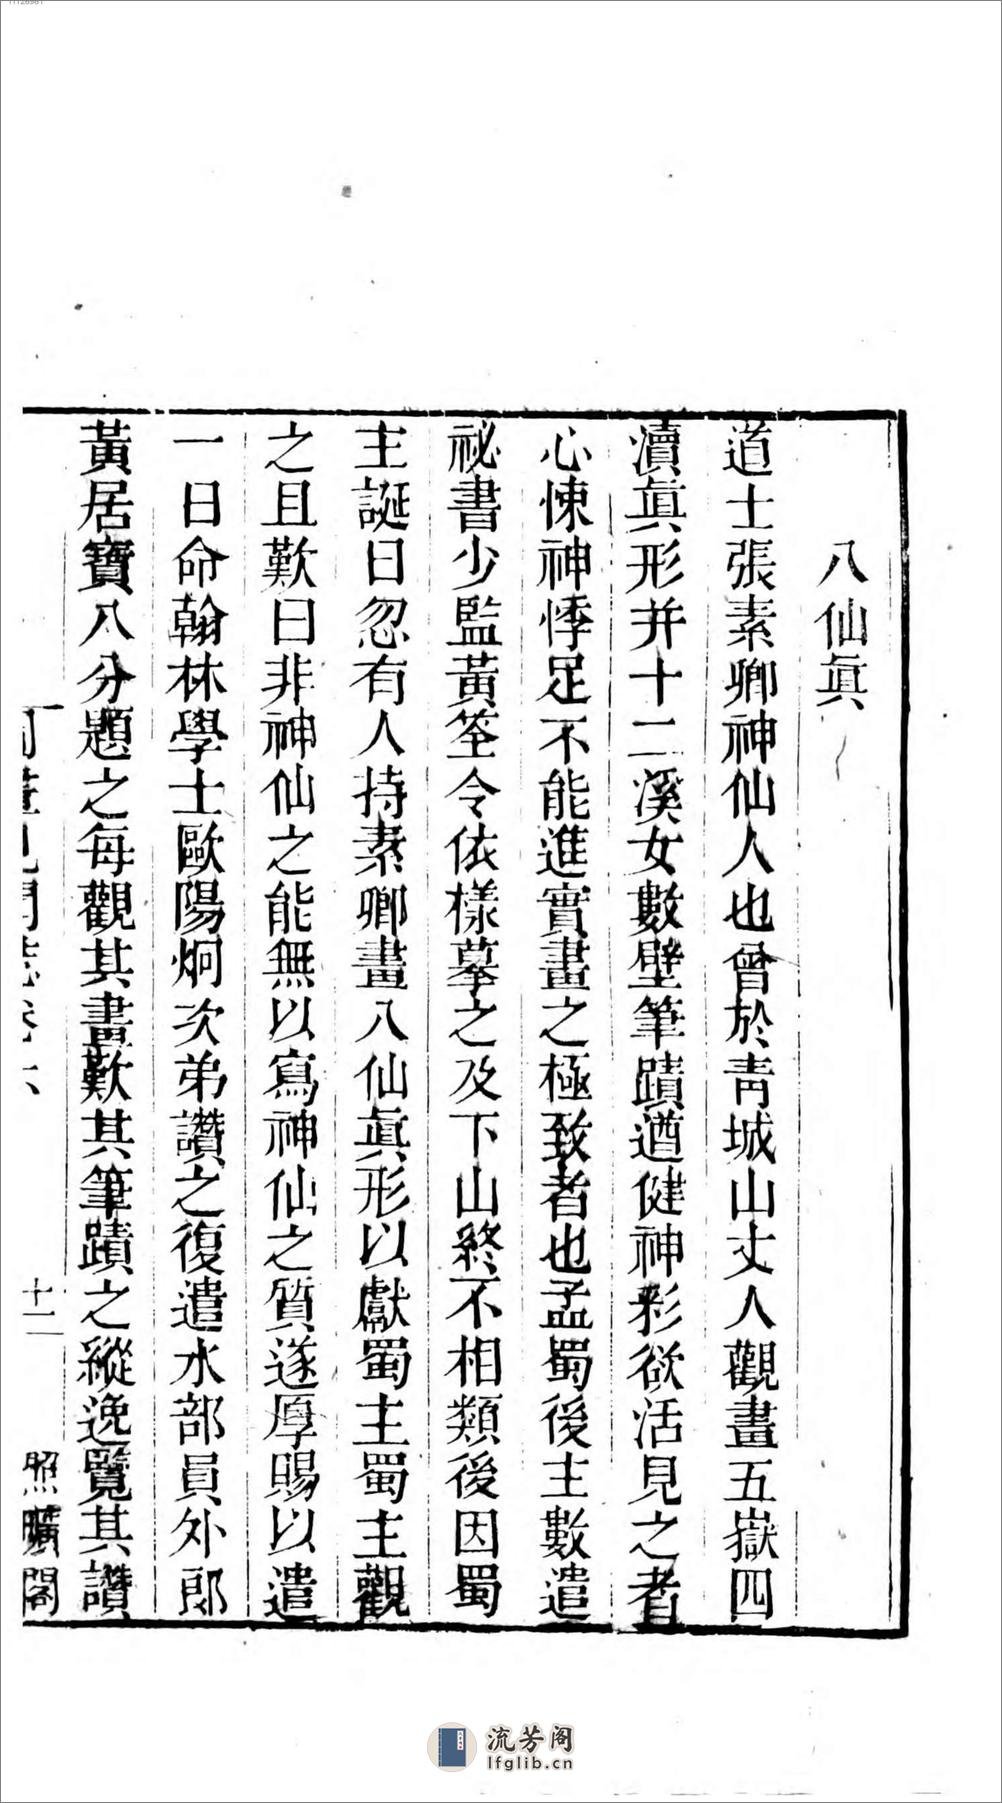 八仙眞
道士張素卿神仙人也曾於青城山丈人觀畫五嶽四
瀆眞形并十二溪女數壁筆蹟遒健神彩欲活見之者
心悚神悸足不能進實畫之極致者也孟蜀後主數遣
祕書少監黃筌令依樣摹之及下山終不相類後因蜀
主誕日忽有人持素卿畫八仙眞形以獻蜀主蜀主觀
之且歎曰非神仙之能無以寫神仙之質遂厚賜以遣
一日命翰林學士歐陽炯次弟讚之復遣水部員外郎
黃居寶八分題之每觀其畫歎其筆蹟之縱逸覽其讚
十一
照曠閣
流芳阁
lfglib.cn